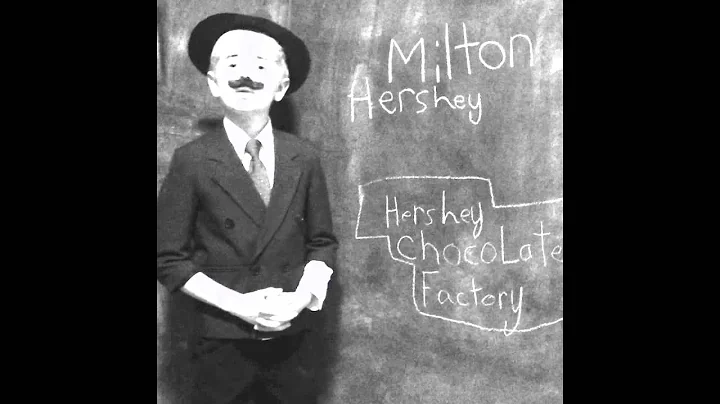 Milton
Hershey
Hershey
ChocoLate
Factory